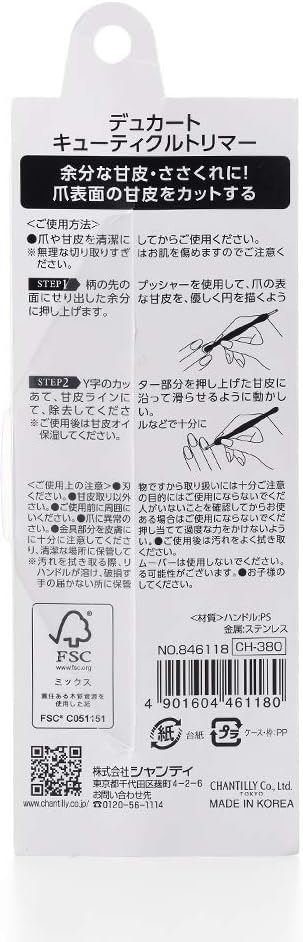 デュカート
キューティクルトリマー
余分な甘皮・ささくれに!
爪表面の甘皮をカットする
<ご使用方法>
●爪や甘皮を清潔にしてからご使用ください。
※無理な切り取りすぎはお肌を傷めますのでご注意ください。
STEP1 柄の先のプッシャーを使用して、爪の表
面にせり出した余分な甘皮を、優しく円を描くよう
に押し上げます。
STEP2 Y字のカッター部分を押し上げた甘皮に
あて、甘皮ラインに沿って滑らせるように動かし
て、除去してください。
※ご使用後は甘皮オイルなどで十分に
保湿してください。
<ご使用上の注意>●刃物ですから取り扱いには十分ご注意
ください。●甘皮取り以外の目的にはご使用にならないでくだ
さい。●ご使用前に周囲に人がいないことを確認してからお使
いください。●爪に異常のある場合はご使用にならないでくだ
さい。●金属部分を皮膚に押し当てて過度な力をかけないでくだ
さい。●ご使用後は汚れをよく拭き取
り、清潔な場所に保管してください。
※汚れを拭き取る際、リムーバーは使用しないでください。
ハンドルが溶け、破損する可能性がございます。●お子様の
手の届かない所に保管してください。
FSC
www.fsc.org
ミックス
責任ある木質資源を
使用した紙
FSC® C051151
<材質>ハンドル:PS
金属:ステンレス
NO.846118 CH-380
4 901604 461180
紙 台紙 プラ ケース・枠:PP
www.chantilly.co.jp/
株式会社シャンティ
東京都千代田区麹町4-2-6
お問い合わせ先
0120-56-1114
CHANTILLY Co., Ltd.
TOKYO
MADE IN KOREA